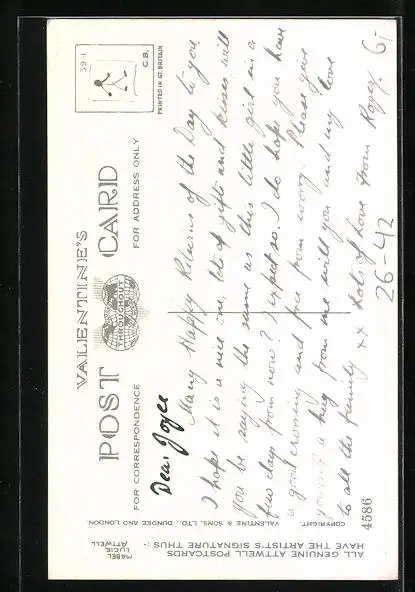 VALENTINE'S
POST CARD
THROUGHOUT
FOR CORRESPONDENCE
FOR ADDRESS ONLY
39-1
C.B.
PRINTED IN GT. BRITAIN
Dear Joyce
Many Happy Returns of the Day to you.
I hope it is a nice one, lots of gifts and kisses will
you be saying the same as this little girl in a
few days from now? I expect so. I do hope you have
a good crossing and free from worry. Please give
yourself a hug from me will you and my love
to all the family xx Lots of love from Roger.
26-42
4586
COPYRIGHT. VALENTINE & SONS, LTD., DUNDEE AND LONDON.
ALL GENUINE ATTWELL POSTCARDS
HAVE THE ARTIST'S SIGNATURE THUS :-
MABEL
LUCIE
ATTWELL